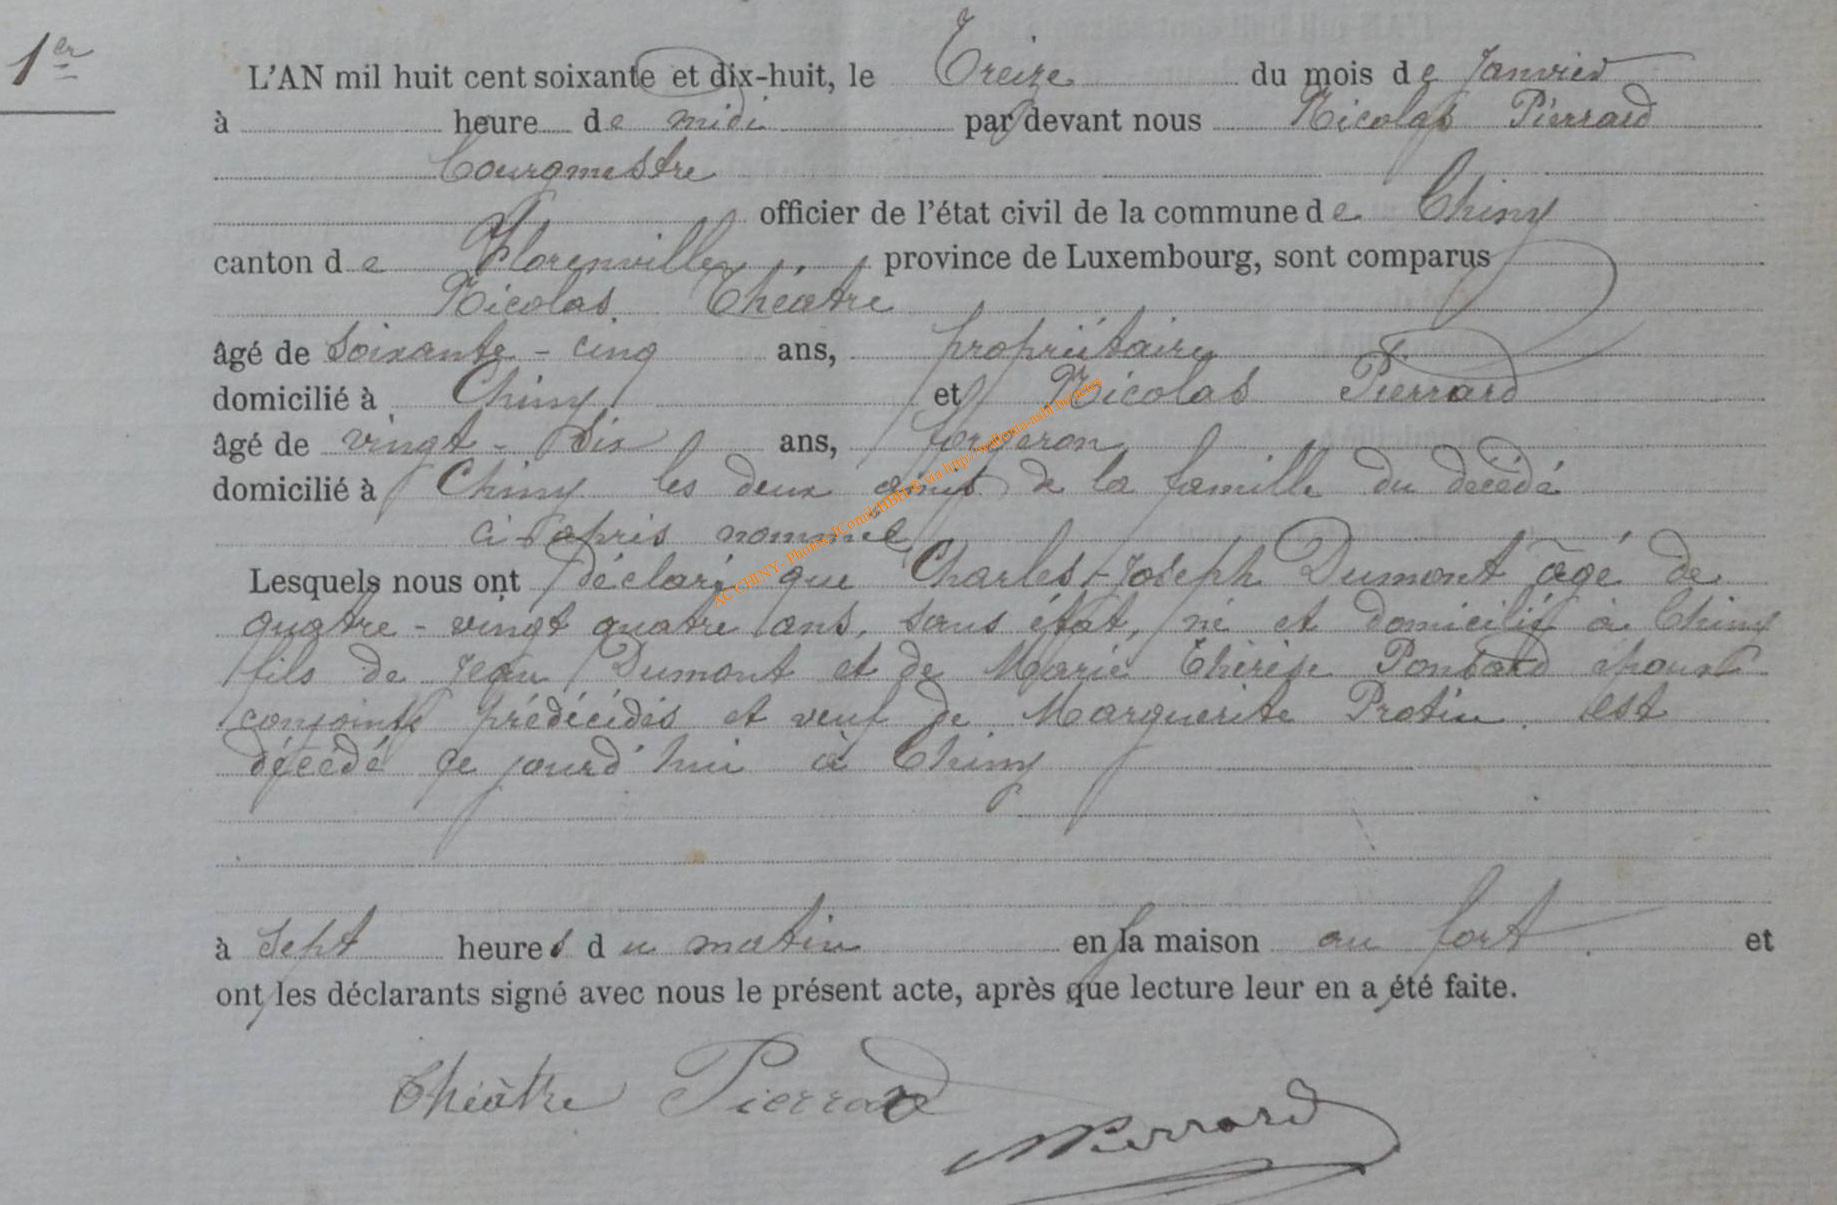 1er
L'AN mil huit cent soixante et dix-huit, le Treize du mois de Janvier
à heure de midi par devant nous Nicolas Pierrard
bourgmestre
officier de l'état civil de la commune de Chiny
canton de Florenville, province de Luxembourg, sont comparus
Nicolas Theatre
âgé de soixante-cinq ans, propriétaire
domicilié à Chiny et Nicolas Pierrard
âgé de vingt-six ans, forgeron
domicilié à Chiny les deux amis de la famille du décédé
ci après nommé
Lesquels nous ont déclaré que Charles-Joseph Dumont âgé de
quatre-vingt quatre ans, sans état, né et domicilié à Chiny
fils de Jean Dumont et de Marie Thérèse Ponsard époux
conjoints prédécédés et veuf de Marguerite Protin est
décédé ce jourd'hui à Chiny
à sept heures du matin en la maison au fort et
ont les déclarants signé avec nous le présent acte, après que lecture leur en a été faite.
Théâtre Pierrard
NPierrard